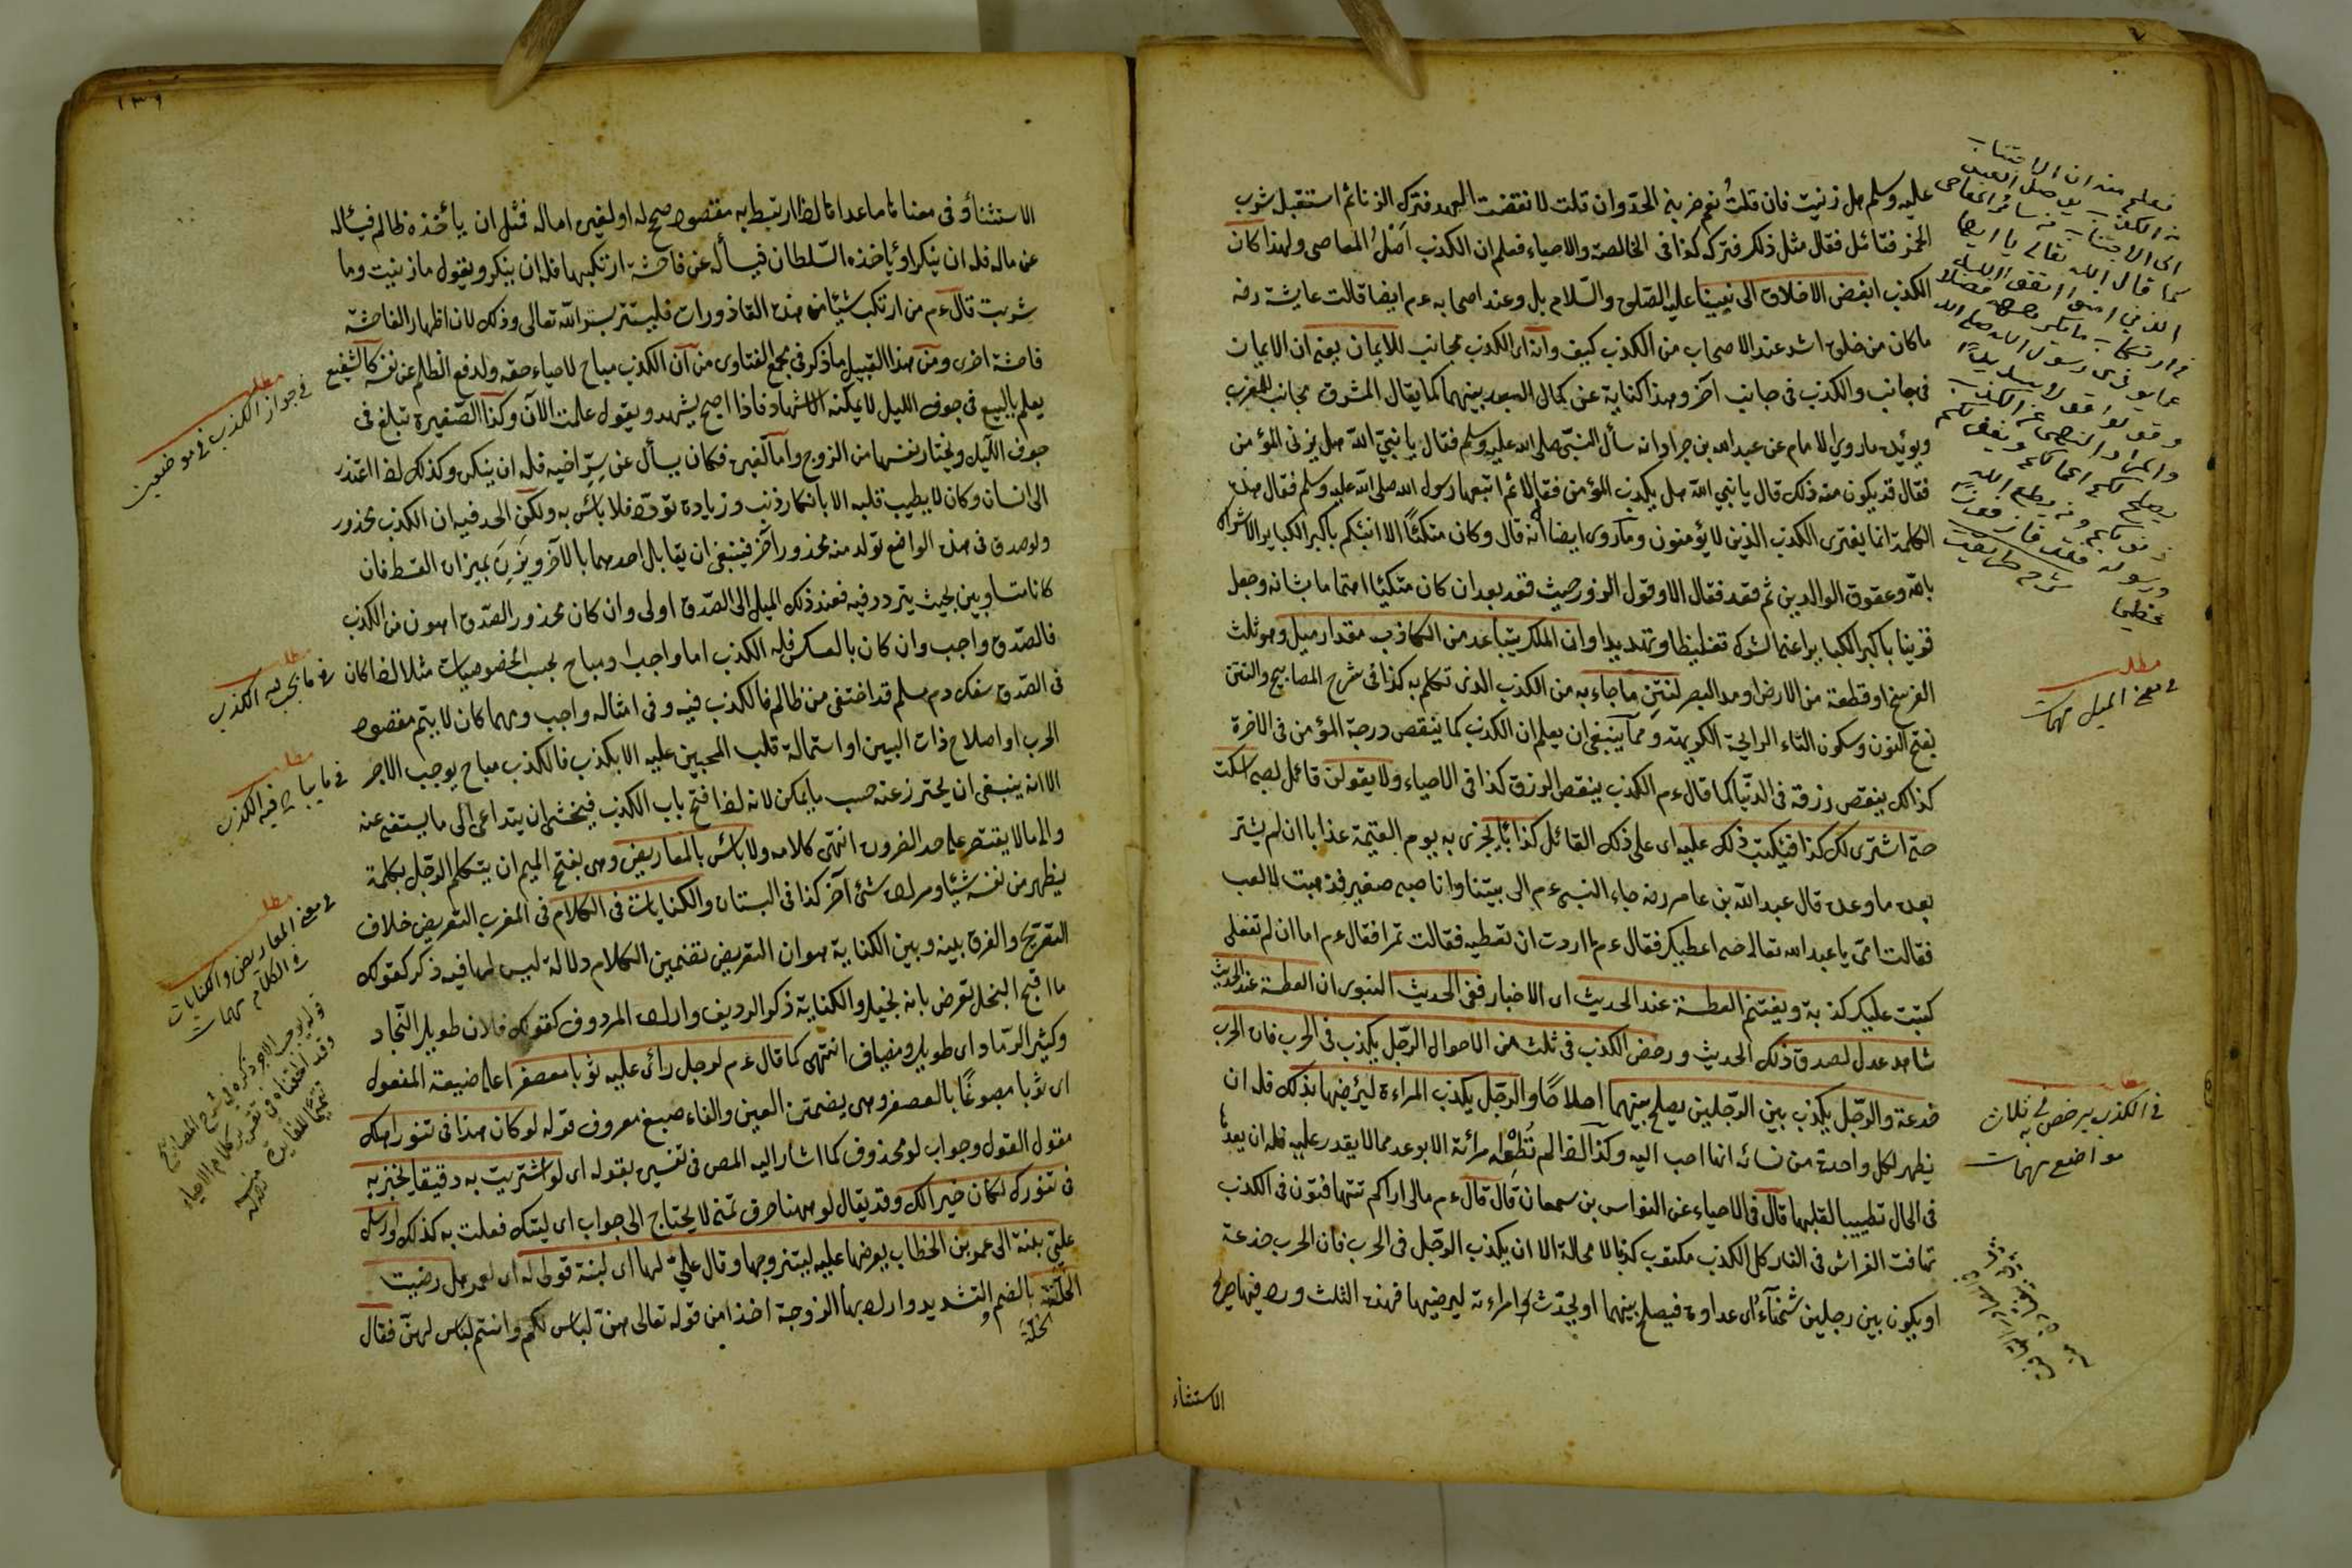 عليه وسلم هل زنيت فان قلتُ نعم ضربنى الحدّ وان قلت لا نقضت العهد فترك الزنا ثم استقبل شرب
الخمر فتأمل فقال مثل ذلك فتركه كذا فى الخالصة والاحياء فعلم ان الكذب اَصْلُ المعاصى ولهذا كان
الكذب ابغض الاخلاق الى نبينا عليه الصلوة والسّلام بل وعند اصحابه ءم ايضا قالت عايشة رضه
ما كان من خلق اشد عند الاصحاب من الكذب كيف وانه اى الكذب مجانب للايمان يعنى ان الايمان
فى جانب والكذب فى جانب آخر وهذا كناية عن كمال البعد بينهما كما يقال المشرق مجانب للمغرب
ويؤيده ما روى الامام عن عبد الله بن جراد انه سأل النبّى صلى الله عليه وسلم فقال يا نبىّ اللّه هل يزنى المؤمن
فقال قد يكون منه ذلك قال يا نبى اللّه هل يكذب المؤمن فقال لا ثم اتبعها رسول الله صلى الله عليه وسلم فقال هذه
الكلمة انما يفترى الكذب الذين لا يؤمنون وما روى ايضا انه قال وكان متكئًا الا انبئكم باكبر الكباير الاشراك
بالله وعقوق الوالدين ثم قعد فقال الا وقول الزور حيث قعد بعد ان كان متكئا اهتماما بشانه وجعل
قرينا باكبر الكباير اعنى الشرك تغليظا وتهديدا وان الملك يتباعد من الكاذب مقدار ميل وهو ثلث
الفرسخ او قطعة من الارض او مد البصر لنتنِ ما جاء به من الكذب الذى تكلم به كذا فى شرح المصابيح والنتن
بفتح النون وسكون التاء الرايحة الكريهة ومما ينبغى ان يعلم ان الكذب كما ينقص درجة المؤمن فى الاخرة
كذلك ينقص رزقه فى الدنّيا كما قال ءم الكذب ينقص الرزق كذا فى الاحياء ولا يقولن قائل لصبى اسكت
حتى اشترى لك كذا فيكتب ذلك عليه اى على ذلك القائل كذابًا يجزى به يوم القيمة عذابا ان لم يشتر
بعده ما وعده قال عبد اللّه بن عامر رضه جاء النبى ءم الى بيتنا وانا صبى صغير فذهبت لالعب
فقالت امّى يا عبد الله تعال حتى اعطيك فقال ءم ما اردت ان تعطيه فقالت تمرا فقال ءم اما ان لم تفعلى
كتبت عليك كذبة ويغتنم العطسة عند الحديث اى الاخبار ففى الحديث النبوى ان العطسة عند الحديث
شاهد عدل لصدق ذلك الحديث ورخص الكذب فى ثلث من الاحوال الرّجل يكذب فى الحرب فان الحرب
خدعة والرّجل يكذب بين الرّجلين يصلح بينهما اصلاحًا والرّجل يكذب المراءة ليرضيها بذلك فله ان
يظهر لكل واحدة من نسائه انها احب اليه وكذا اذا لم تُطِعْه امرأته الا بوعد مما لا يقدر عليه فله ان يعدها
فى الحال تطييبا لقلبها قال فى الاحياء عن النواس بن سمعان قال قال ءم مالى اراكم تتهافتون فى الكذب
تهافت الفراش فى النار كل الكذب مكتوب كذبا لا محالة الا ان يكذب الرّجل فى الحرب فان الحرب خدعة
او يكون بين رجلين شحنآء اى عداوة فيصلح بينهما او يحدّث امراءته ليرضيها فهذه الثلث ورد فيها صريح
الاستثناء
فعلم منه ان الاجتناب
من الكذب يوصل العبد
الى الاجتناب من سائر المعاصى
كما قال الله تعالى يا ايها
الذين امنوا اتقوا الله
والمراد النهى عن الكذب
يصلح لكم اعمالكم ويغفر لكم
ذنوبكم ومن يطع الله
ورسوله فقد فاز فوزا
عظيما
مطلب
فى معنى الميل مهمات
مطلب
فى الكذب يرخص فى ثلاث
مواضع مهمات
١٣٦
الاستثناؤ فى معناها ما عداها اذا ارتبط به مقصود صحيح له او لغيره اماله فمثل ان يأخذه ظالم فيسأله
عن ماله فله ان ينكر او يأخذه السّلطان فيسأله عن فاحشة ارتكبها فله ان ينكر ويقول ما زنيت وما
شربت قال ءم من ارتكب شيئا من هذه القاذورات فليستتر بستر اللّه تعالى وذلك لان اظهار الفاحشة
فاحشة اخرى ومن هذا القبيل ما ذكر فى مجمع الفتاوى من ان الكذب مباح لاحياء حقه ولدفع الظلم عن نفسه كالشفيع
يعلم بالبيع فى جوف الليل لا يمكنه الاشهاد فاذا اصبح يشهد ويقول علمت الآن وكذا الصّغيرة تبلغ فى
جوف اللّيل وتختار نفسها من الزوج واما لغيره فكان يسأل عن سِرّ اخيه فله ان ينكر وكذلك اذا اعتذر
الى انسان وكان لا يطيب قلبه الا بانكار ذنب وزيادة تودّد فلا بأس به ولكن الحد فيه ان الكذب محذور
ولو صدق فى هذه المواضع تولد منه محذور آخر فينبغى ان يقابل احدهما بالآخر ويَزِنَ بميزان القسط فان
كانا متساويين بحيث يتردد فيه فعند ذلك الميل الى الصّدق اولى وان كان محذور الصّدق اهون من الكذب
فالصّدق واجب وان كان بالعكس فله الكذب اما واجبا او مباح بحسب الخصوصيات مثلا اذا كان
فى الصّدق سفك دم مسلم قد اختفى من ظالم فالكذب فيه وفى امثاله واجب ومهما كان لا يتم مقصود
الحرب او اصلاح ذات البين او استمالة قلب المجنى عليه الا بكذب فالكذب مباح يوجب الاجر
الا انه ينبغى ان يحترز عنه حسب ما يمكن لانه اذا فتح باب الكذب فيخشى ان يتداعى الى ما يستغنى عنه
والى ما لا يقتصر على حد الضرورة انتهى كلامه ولا بأس بالمعاريض وهى بفتح الميم ان يتكلم الرّجل بكلمة
يظهر من نفسه شيئا ومراده شئ آخر كذا فى البستان والكنايات فى الكلام فى المغرب التعريض خلاف
التصريح والفرق بينه وبين الكناية هو ان التعريض تضمين الكلام دلالة ليس لها فيه ذكر كقولك
ما اقبح البخل تعرض بانه بخيل والكناية ذكر الرديف وارادة المردوف كقولك فلان طويل النّجاد
وكثير الرّماد اى طويل ومضياف انتهى كما قال ءم لرجل رأى عليه ثوبا معصفرا على صيغة المفعول
اى ثوبا مصبوغًا بالعصفر وهى بضمتى العين والفاء صبغ معروف قوله لو كان هذا فى تنور اهلك
مقول القول وجواب لو محذوف كما اشار اليه المص فى تفسيره بقوله اى لو اشتريت به دقيقا يخبز به
فى تنورك لكان خيرا لك وقد يقال لو ههنا حرف تمنى لا يحتاج الى جواب اى ليتك فعلت به كذلك وارسل
علىّ بابنته الى عمر بن الخطاب يعرضها عليه ليتزوجها وقال علىّ لها اى لبنته قولى له اى لعمر هل رضيت
الحلّة بالضم والتشديد واراد بها الزوجة اخذا من قوله تعالى هنّ لباس لكم وانتم لباس لهنّ فقال
الحُلّة
مطلب
فى جواز الكذب فى موضعين
مطلب
فى ما يجب فيه الكذب
مطلب
فى ما يباح فيه الكذب
مطلب
فى معنى المعاريض والكنايات
فى الكلام مهمات
قوله يوجب الاجر ذكره فى شرح المصابيح
وقد الحقناه فى تقرير كلام الاحياء
تتميما للفائدة منه